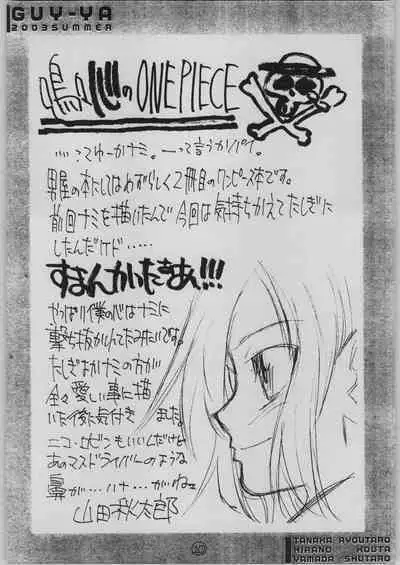 GUY-YA
2003SUMMER
鳴呼心のONE PIECE
…ってゆーかナミ。ーって言うかパイ。
男屋の本にしてはめずらしく2冊目のワンピース本です。
前回ナミを描いたんで今回は気持ちかえてたしぎに
したんだけド……
すまんかいたきあん!!!
やっぱり僕の心はナミに
撃ち抜かれてたみたいです。
たしぎよかナミの方が
全々愛しい事に描
いた後に気付き また
ニコ・ロビンもいいんだけど
あのマスドライバーのような
鼻が…ハナ…がねェ
山田秋太郎
TANAKA RYOUTARO
HIRANO KOUTA
YAMADA SHUTARO